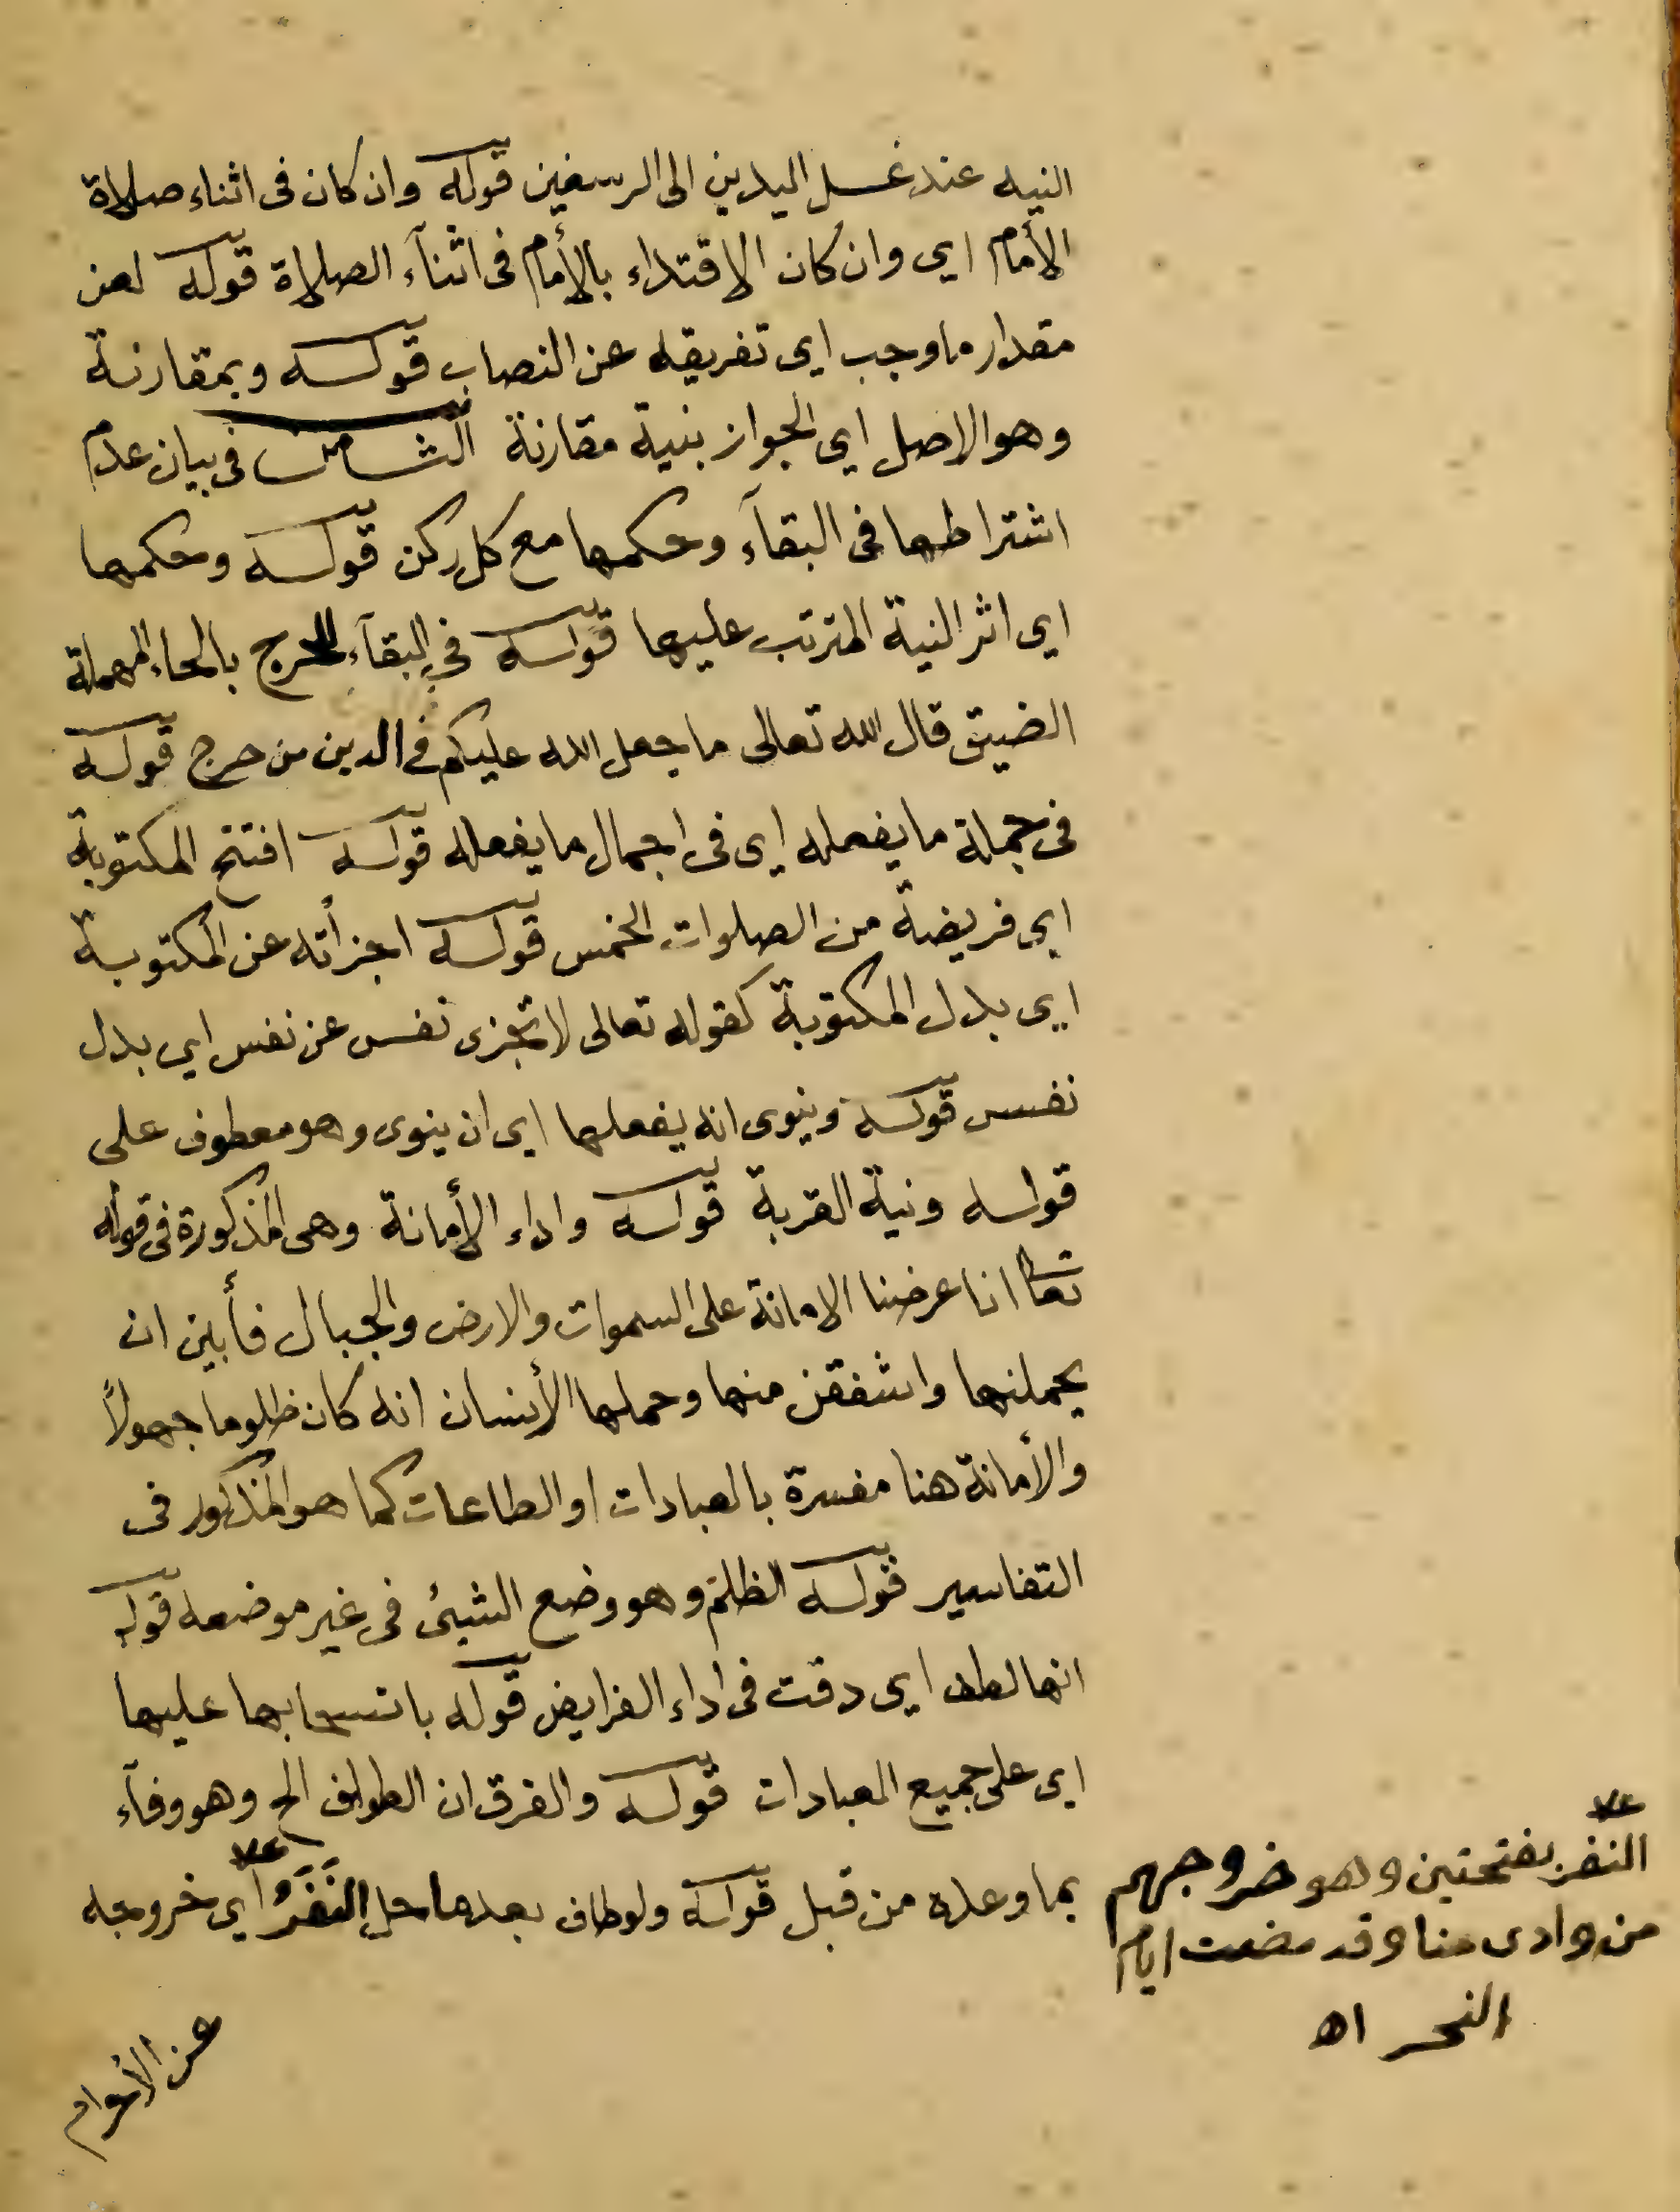 النيه عند غسل اليدين الى الرسغين قوله وان كان فى اثناء صلاة
الأمام اي وان كان الاقتداء بالأمام فى اثنآء الصلاة قوله لعن
مقدار ما وجب اى تفريقه عن النصاب قوله وبمقارنة
وهو الاصل اى الجواز بنية مقارنة الثامن فى بيان عدم
اشتراطها فى البقآء وحكمها مع كل ركن قوله وحكمها
اي اثر النية المترتب عليها قوله فى البقآء للحرج بالحاء المهملة
الضيق قال الله تعالى ما جعل الله عليكم فى الدين من حرج قوله
فى جملة ما يفعله اى فى اجمال ما يفعله قوله افتتح المكتوبة
اي فريضة من الصلوات الخمس قوله اجزأته عن المكتوبة
اي بدل المكتوبة كقوله تعالى لا تجزى نفس عن نفس اي بدل
نفس قوله وينوى انه يفعلها اى ان ينوى وهو معطوف على
قوله ونية القربة قوله واداء الأمانة وهى المذكورة فى قوله
تعا انا عرضنا الامانة على السموات والارض والجبال فأبين ان
يحملنها واشفقن منها وحملها الأنسان انه كان ظلوما جهولاً
والأمانة هنا مفسرة بالعبادات او الطاعات كما هو المذكور فى
التفاسير قوله الظلم وهو وضع الشيئ فى غير موضعه قوله
انها لطف اى دقت فى اداء الفرايض قوله بانسحابها عليها
اى على جميع العبادات قوله والفرق ان الطواف الخ وهو وفآء
بما وعده من قبل قوله ولو طاف بعدما حل النَفَرُ اي خروجه
عن الأحرام
النفر بفتحتين وهو خروجهم
من وادى منا وقد مضت ايام
النحر اه